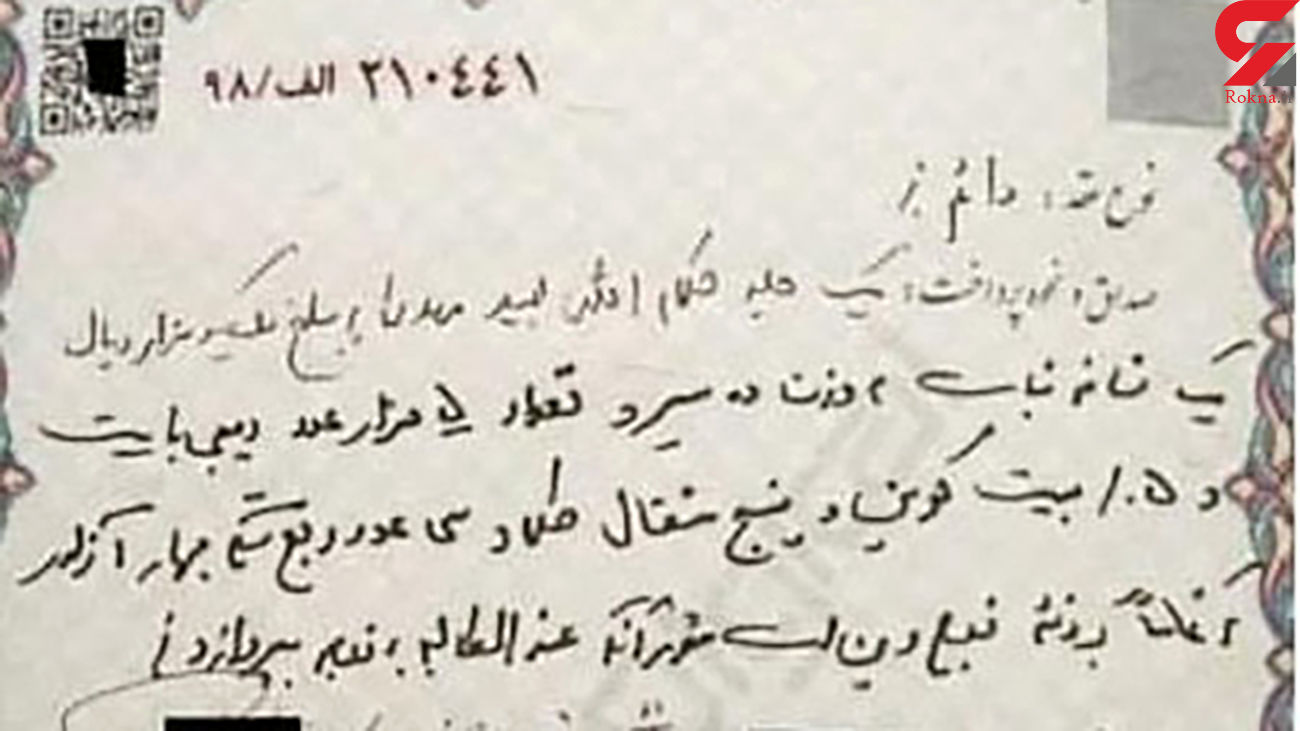 ۲۱۰۴۴۱ الف/۹۸
Rokna.ir
نوع عقد: دائم
صداق و نحوه پرداخت: یک جلد کلام الله مجید مهد یا بمبلغ یکصد هزار ریال
یک شاخه نبات بوزن ده سیر و تعداد ۵ هزار عدد دیجی بایت
و ۰.۵/ بیت کوین و پنج مثقال طلا و سی عدد ربع سکه بهار آزادی
که تماماً بر ذمه زوج دین است که عند المطالبه به زوجه بپردازد